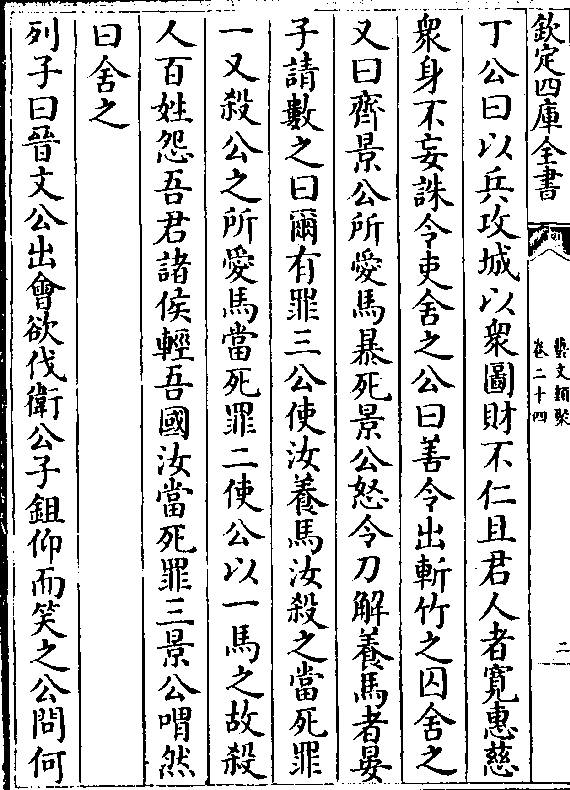 欽定四庫全書
藝文類聚
卷二十四
二
丁公曰以兵攻城以衆圖財不仁且君人者寛惠慈
衆身不妄誅令吏舍之公曰善令出斬竹之囚舍之
又曰齊景公所愛馬暴死景公怒令刀解養馬者晏
子請數之曰爾有罪三公使汝養馬汝殺之當死罪
一又殺公之所愛馬當死罪二使公以一馬之故殺
人百姓怨吾君諸侯輕吾國汝當死罪三景公喟然
曰舍之
列子曰晉文公出會欲伐衛公子鉏仰而笑之公問何